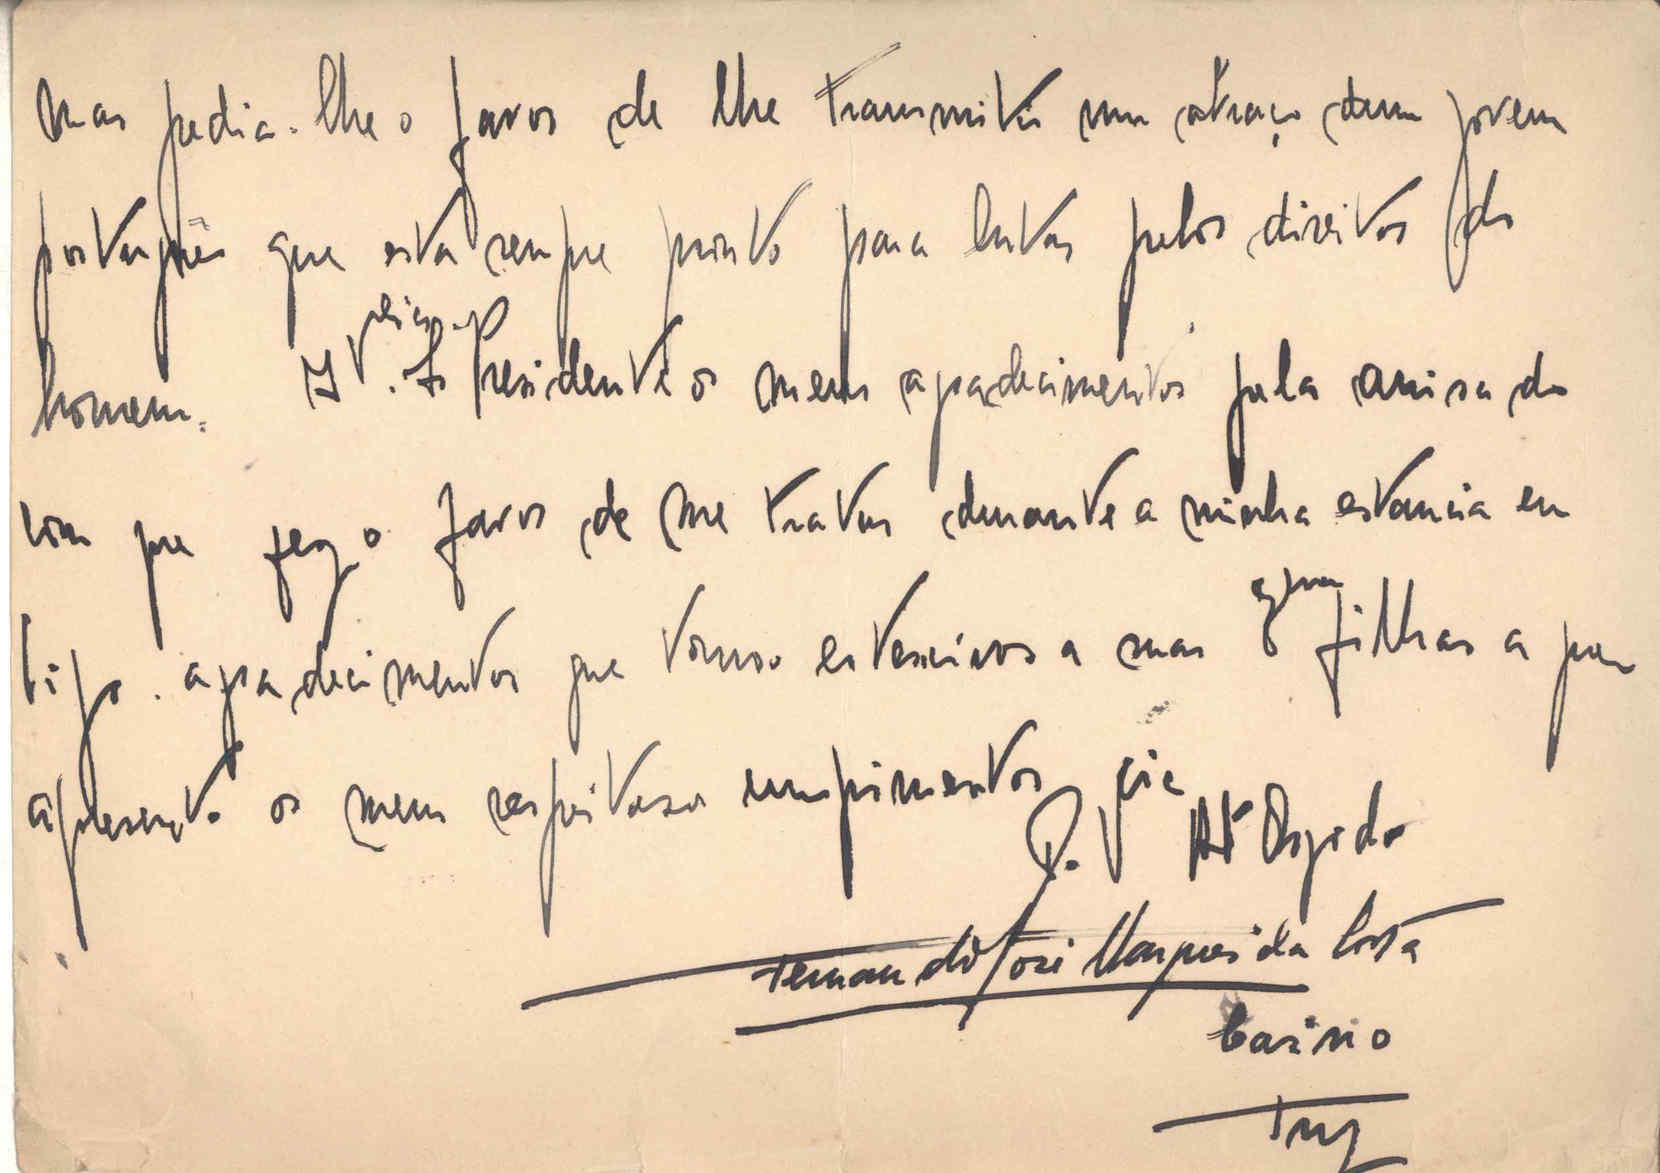 mas pedia-lhe o favor de lhe transmitir um abraço dum jovem
português que está sempre pronto para lutar pelos direitos do
homem. A V. Excia. Sr. Presidente os meus agradecimentos pela amisade
com que fez o favor de me tratar durante a minha estancia em
Vigo. agradecimentos que torno extensivos a suas filhas a quem
apresento os meus respeitosos cumprimentos
De V. Excia Att Obrigado
Fernando José Marques da Costa
Casino
Tuy